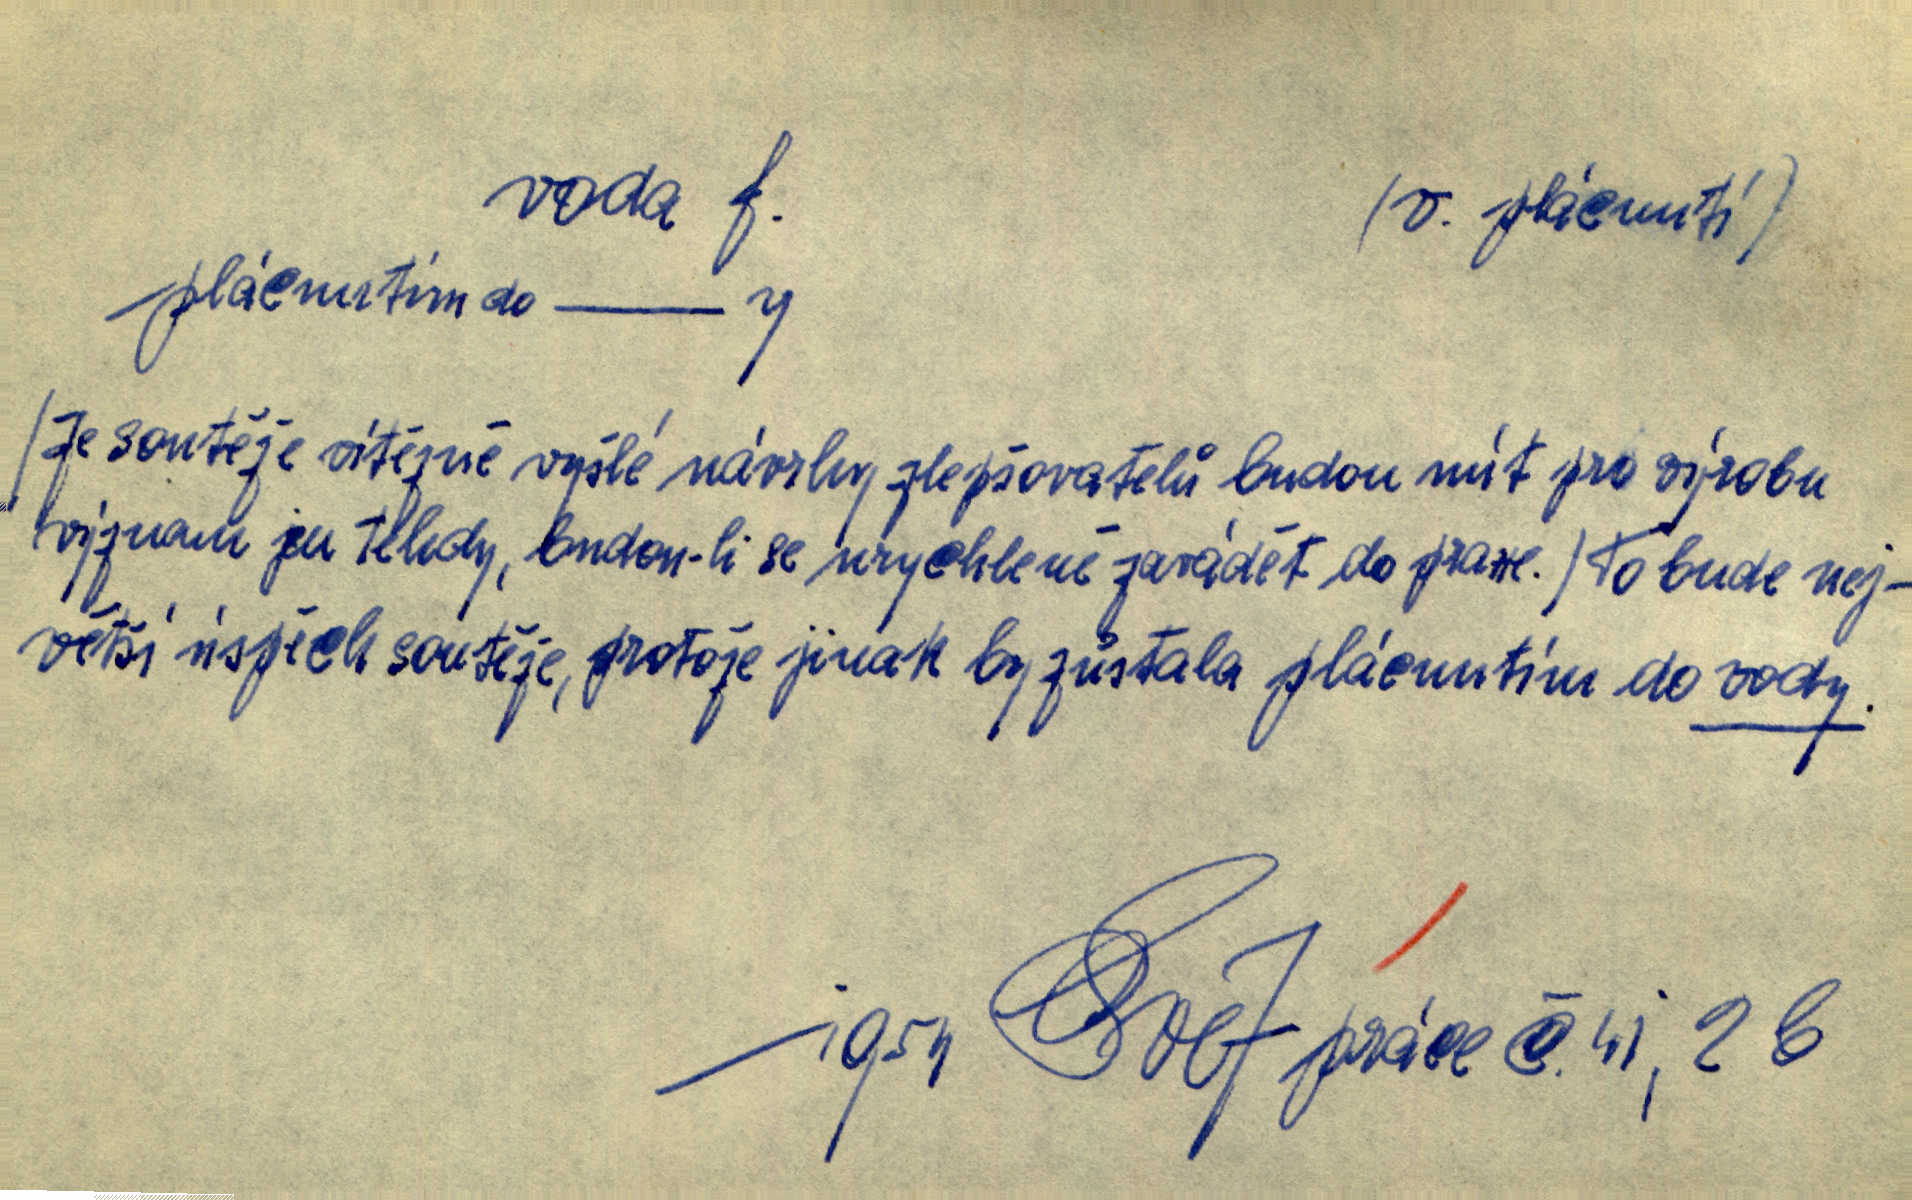 voda f. (v. plácnutí)
plácnutím do ——— y
/Ze soutěže vítězně vyšlé návrhy zlepšovatelů budou mít pro výrobu
význam jen tehdy, budou-li se urychleně zavádět do praxe./ To bude nej-
větší úspěch soutěže, protože jinak by zůstala plácnutím do vody.
1954 Svět práce č. 41, 2 b